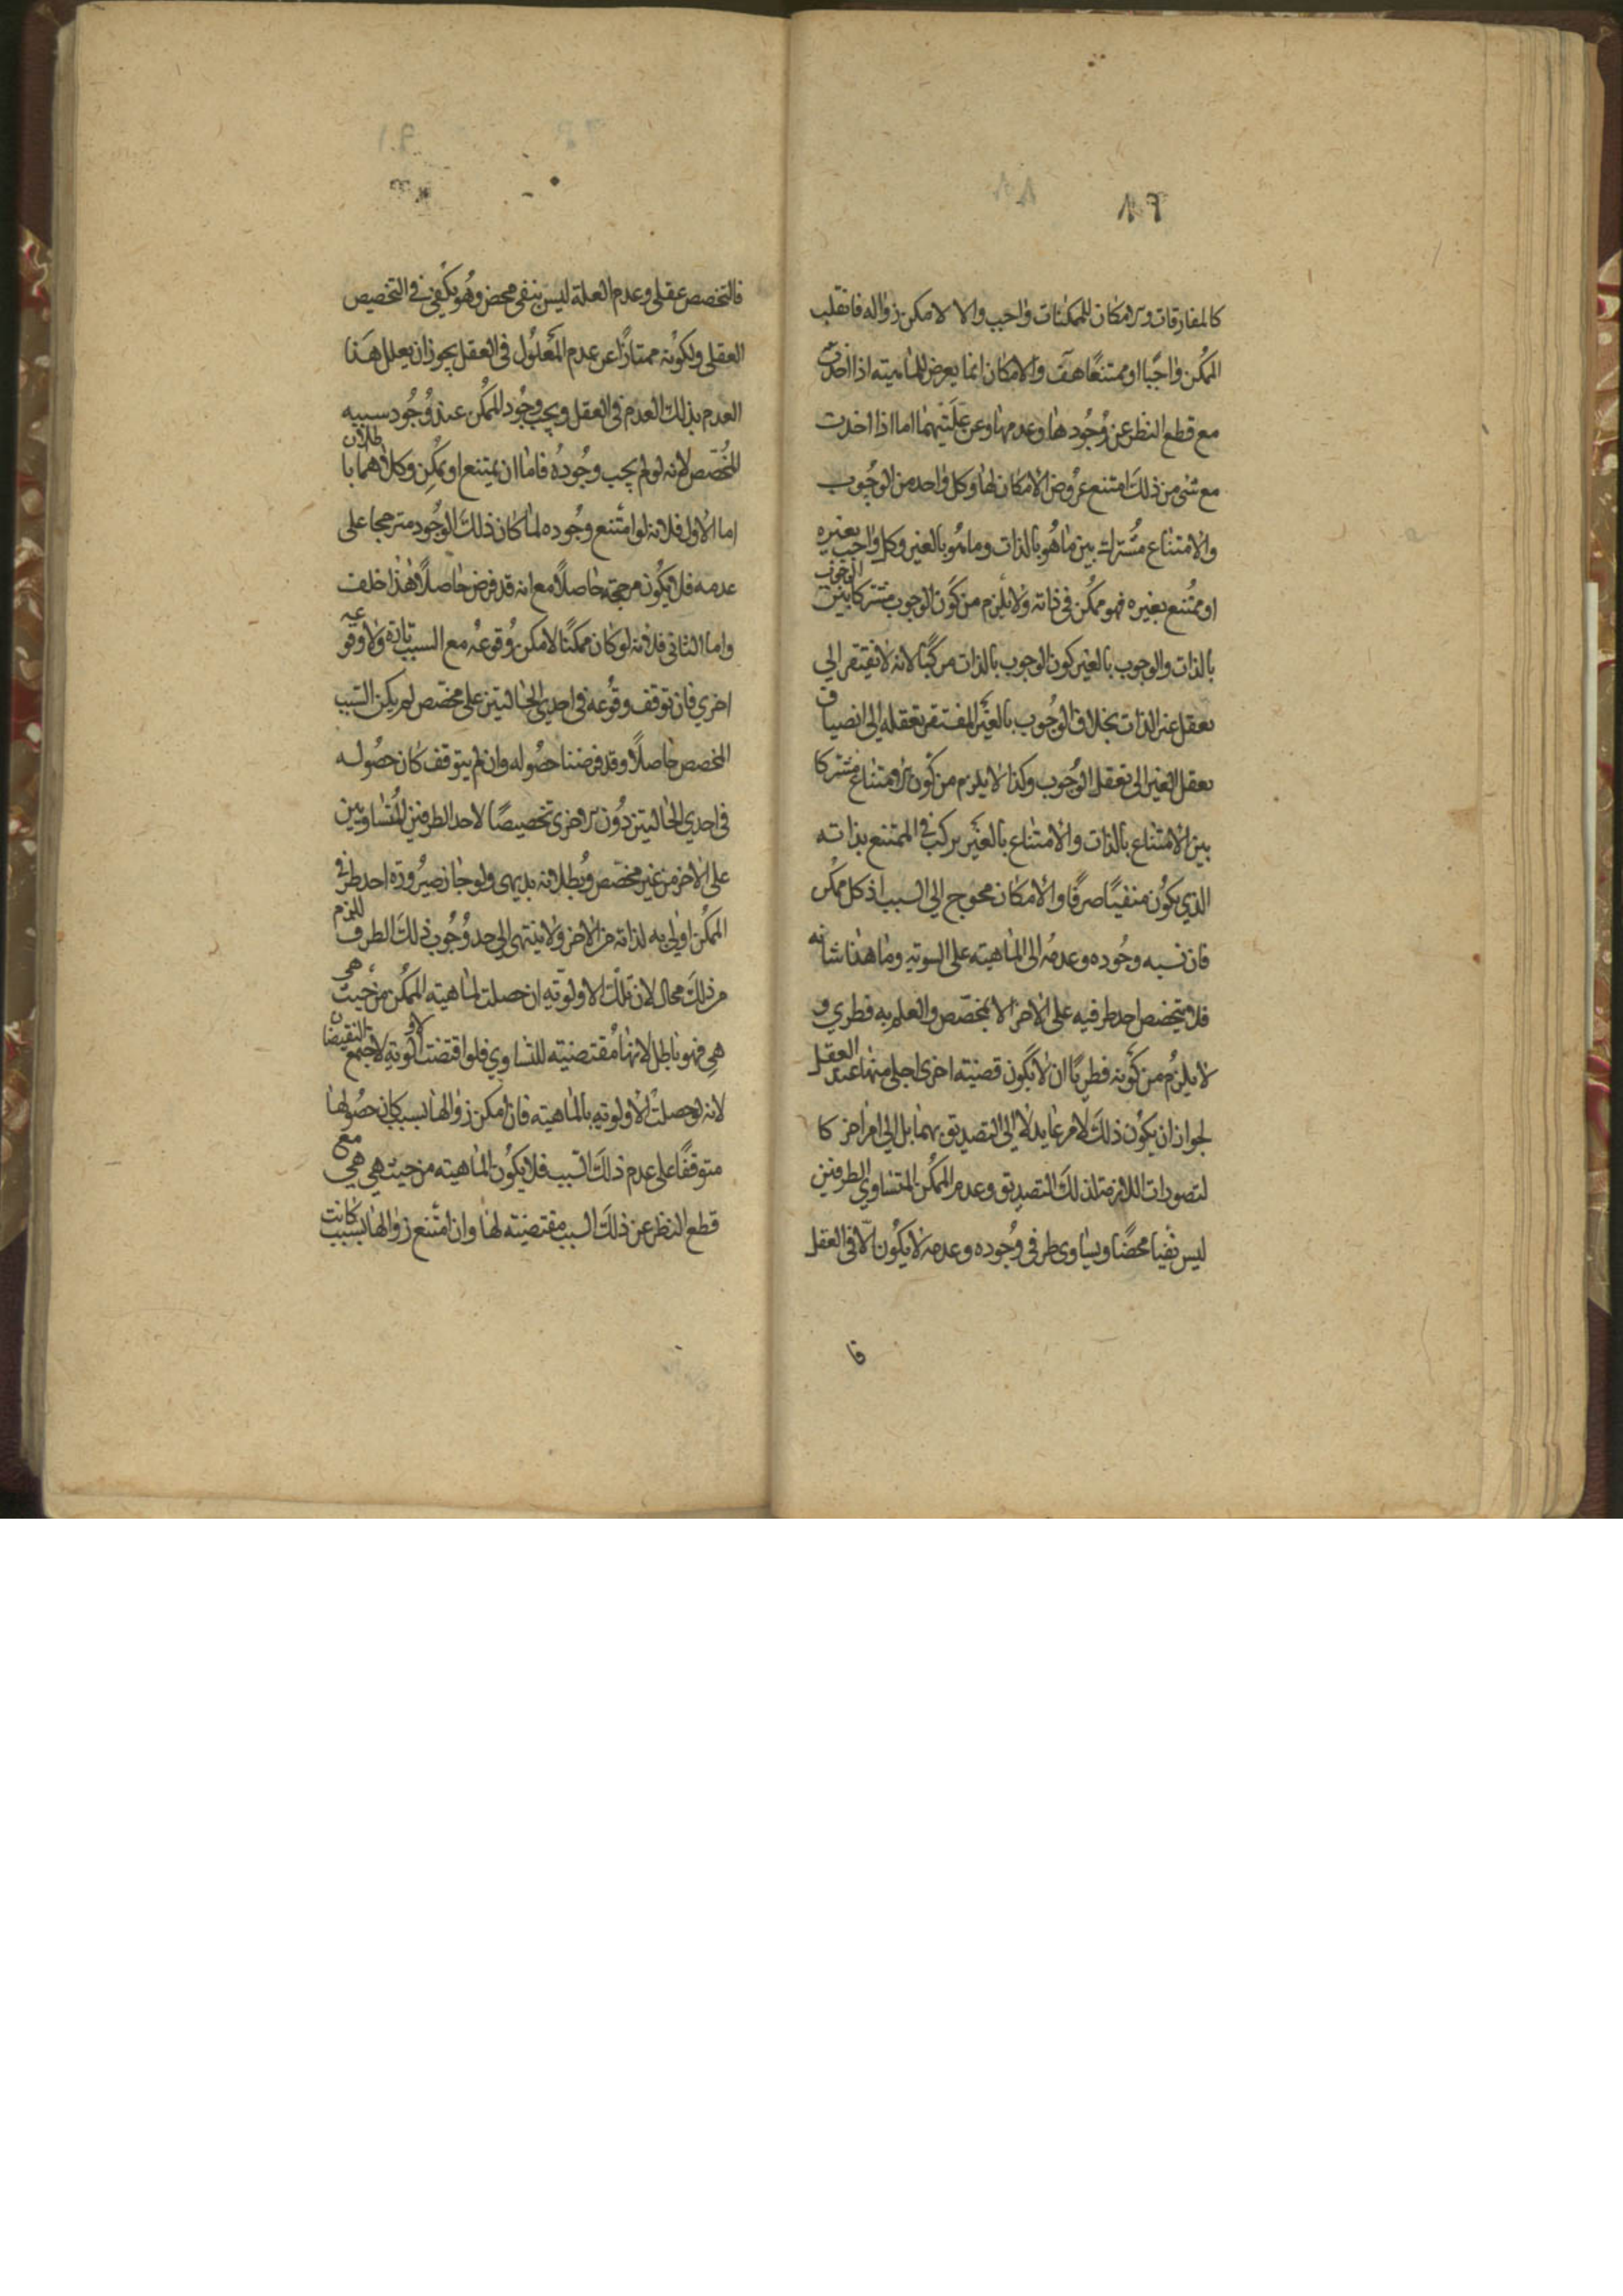 كالمفارقات والامكان للممكنات واجب والا لامكن زواله فانقلب
الممكن واجبًا او ممتنعًا هف والامكان انما يعرض للماهيته اذا اخذت
مع قطع النظر عن وجودها وعدمها وعن علتيهما اما اذا اخذت
مع شئ من ذلك امتنع عروض الامكان لها وكل واحد من الوجوب
والامتناع مشترك بين ما هو بالذات وما هو بالغير وكل واجب بغيره
او ممتنع بغيره فهو ممكن في ذاته ولا يلزم من كون الوجوب مشتركا بين الوجوب
بالذات والوجوب بالغير كون الوجوب بالذات مركبًا لانه لا يفتقر الي
تعقل غير الذات بخلاف الوجوب بالغير المفتقر تعقله الي انضياف
تعقل الغير الى تعقل الوجوب وكذا لا يلزم من كون الامتناع مشتركا
بين الامتناع بالذات والامتناع بالغير تركب في الممتنع بذاته
الذي يكون منفيًا صرفًا والامكان محوج الي السبب اذ كل ممكن
فان نسبه وجوده وعدمه الى الماهيته على السويه وما هذا شانه
فلا يتخصص احد طرفيه على الاخر الا بمخصص والعلم به فطري و
لا يلزم من كونه فطريًا ان لا يكون قضيته اخرى اجلى منها عند العقل
لجواز ان يكون ذلك لامر عايد لا الي التصديق بهما بل الي امر اخر كا
لتصورات اللازمة لذلك التصديق وعدم الممكن المتساوي الطرفين
ليس نفيا محضًا وتساوى طرفى وجوده وعدمه لا يكون الا فى العقل
فا
فالتخصص عقلى وعدم العلة ليس بنفى محض وهو يكفى في التخصيص
العقلى ولكونه ممتازًا عن عدم المعلول فى العقل يجوز ان يعلل هذا
العدم بذلك العدم فى العقل ويجب وجود الممكن عند وجود سببيه
المخصص لانه لو لم يجب وجوده فاما ان يمتنع او يمكن وكلاهما باطلان
اما الاول فلانه لو امتنع وجوده لما كان ذلك الوجود مترجحا على
عدمه فلا يكون مرجحه حاصلًا مع انه قد فرض حاصلًا هذا خلف
واما الثانى فلانه لو كان ممكنًا لامكن وقوعه مع السبب تارة ولا وقوعه
اخري فان توقف وقوعه فى احدي الحالتين على مخصص لم يكن السبب
المخصص حاصلًا وقد فرضنا حصوله وان لم يتوقف كان حصوله
فى احدي الحالتين دون الاخرى تخصيصًا لاحد الطرفين المتساويين
على الاخر من غير مخصص وبطلانه بديهى ولو جاز صيرورة احد طرفى
الممكن اولى به لذاته من الاخر ولا ينتهى الي حد وجوب ذلك الطرف للزم
من ذلك محال لان تلك الاولويه ان حصلت لماهيته الممكن من حيث هى
هي فهو باطل لانها مقتضيته للتساوي فلو اقتضت الاولوية لاجتمع النقيضان
لانه لو حصلت الاولويه بالماهيته فان امكن زوالها بسبب كان حصولها
متوقفًا على عدم ذلك السبب فلا يكون الماهيته من حيث هي هي مع
قطع النظر عن ذلك السبب مقتضيته لها وان امتنع زوالها بسبب كانت